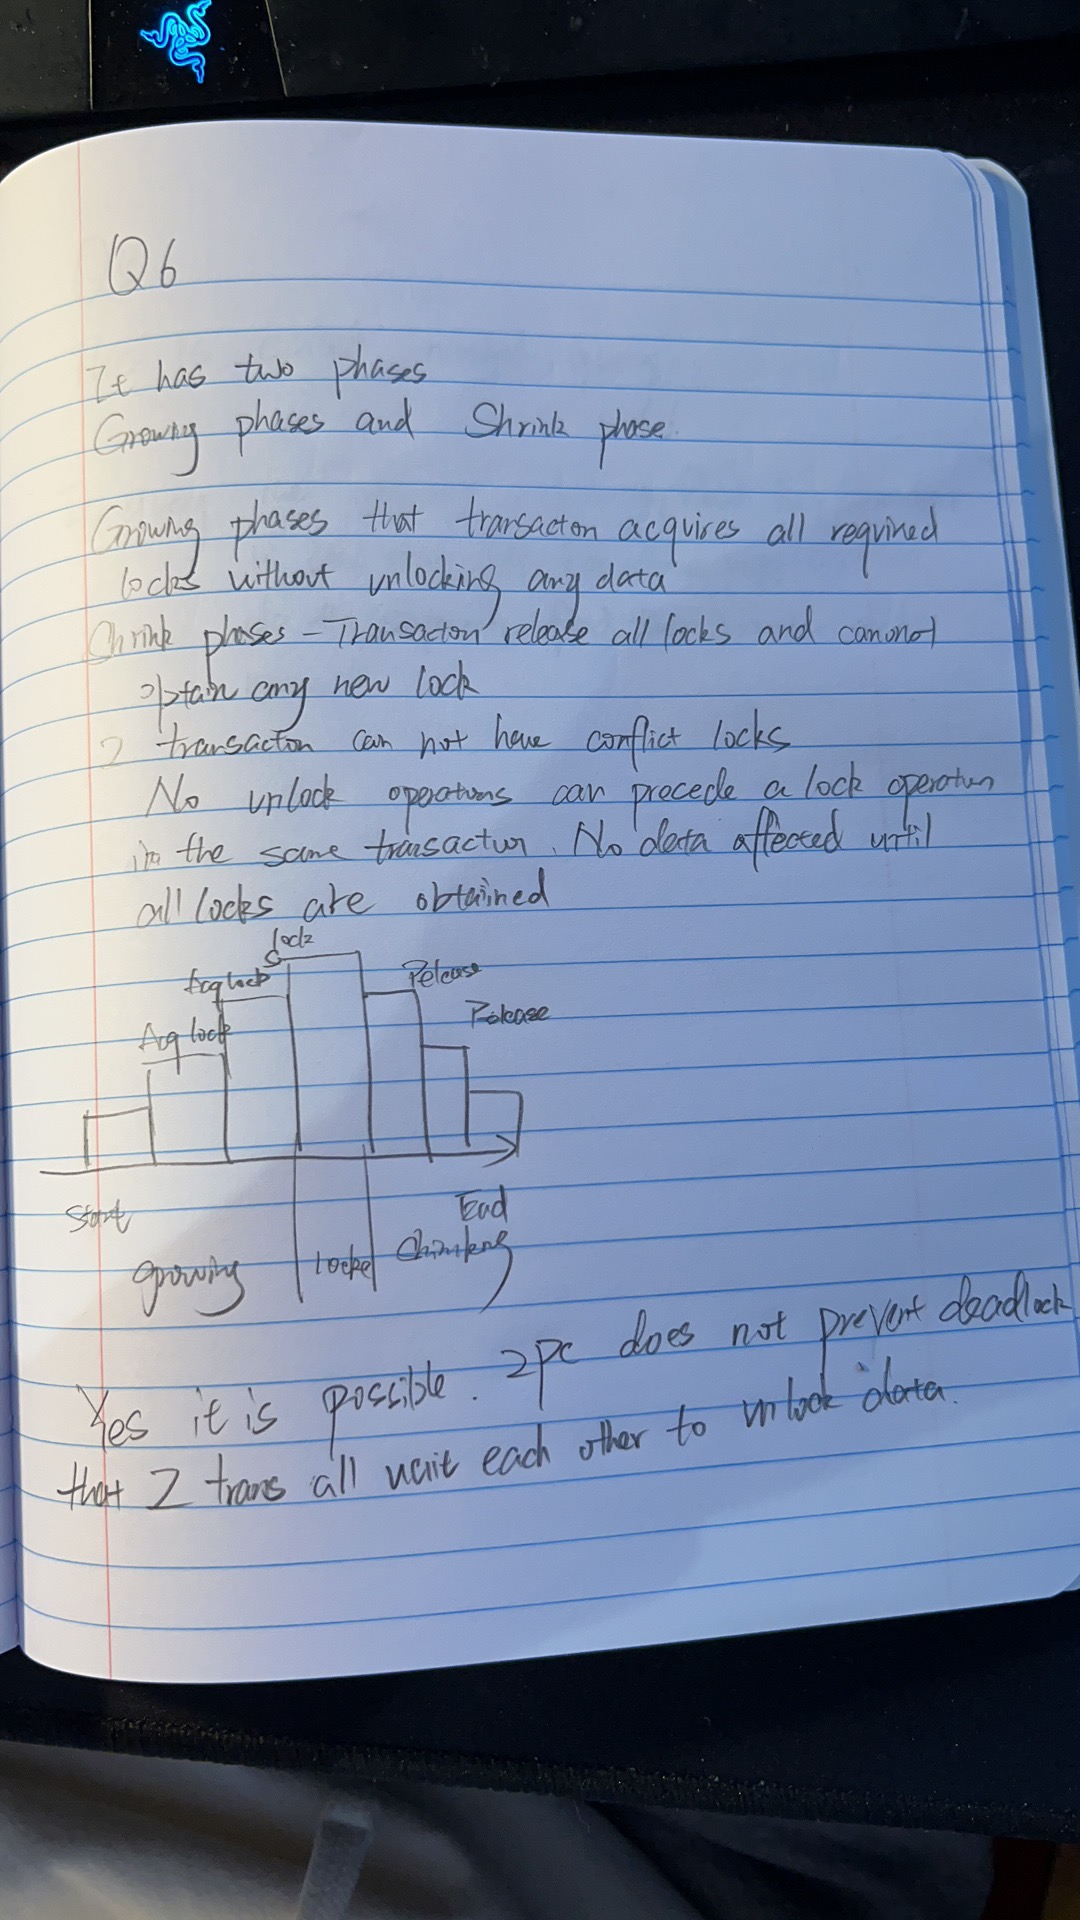 Q6
It has two phases
Growing phases and Shrink phase.
Growing phases that transacton acquires all required
locks without unlocking any data
Shrink phases - Transacton release all locks and cannot
obtain any new lock
2 transacton can not have conflict locks
No unlock operations can precede a lock operation
in the same transaction. No data affected until
all locks are obtained
lock
Acq lock
Release
Acq lock
Release
Start
End
growing
locked
Shrinking
Yes it is possible. 2pc does not prevent deadlock
that 2 trans all wait each other to unlock data.